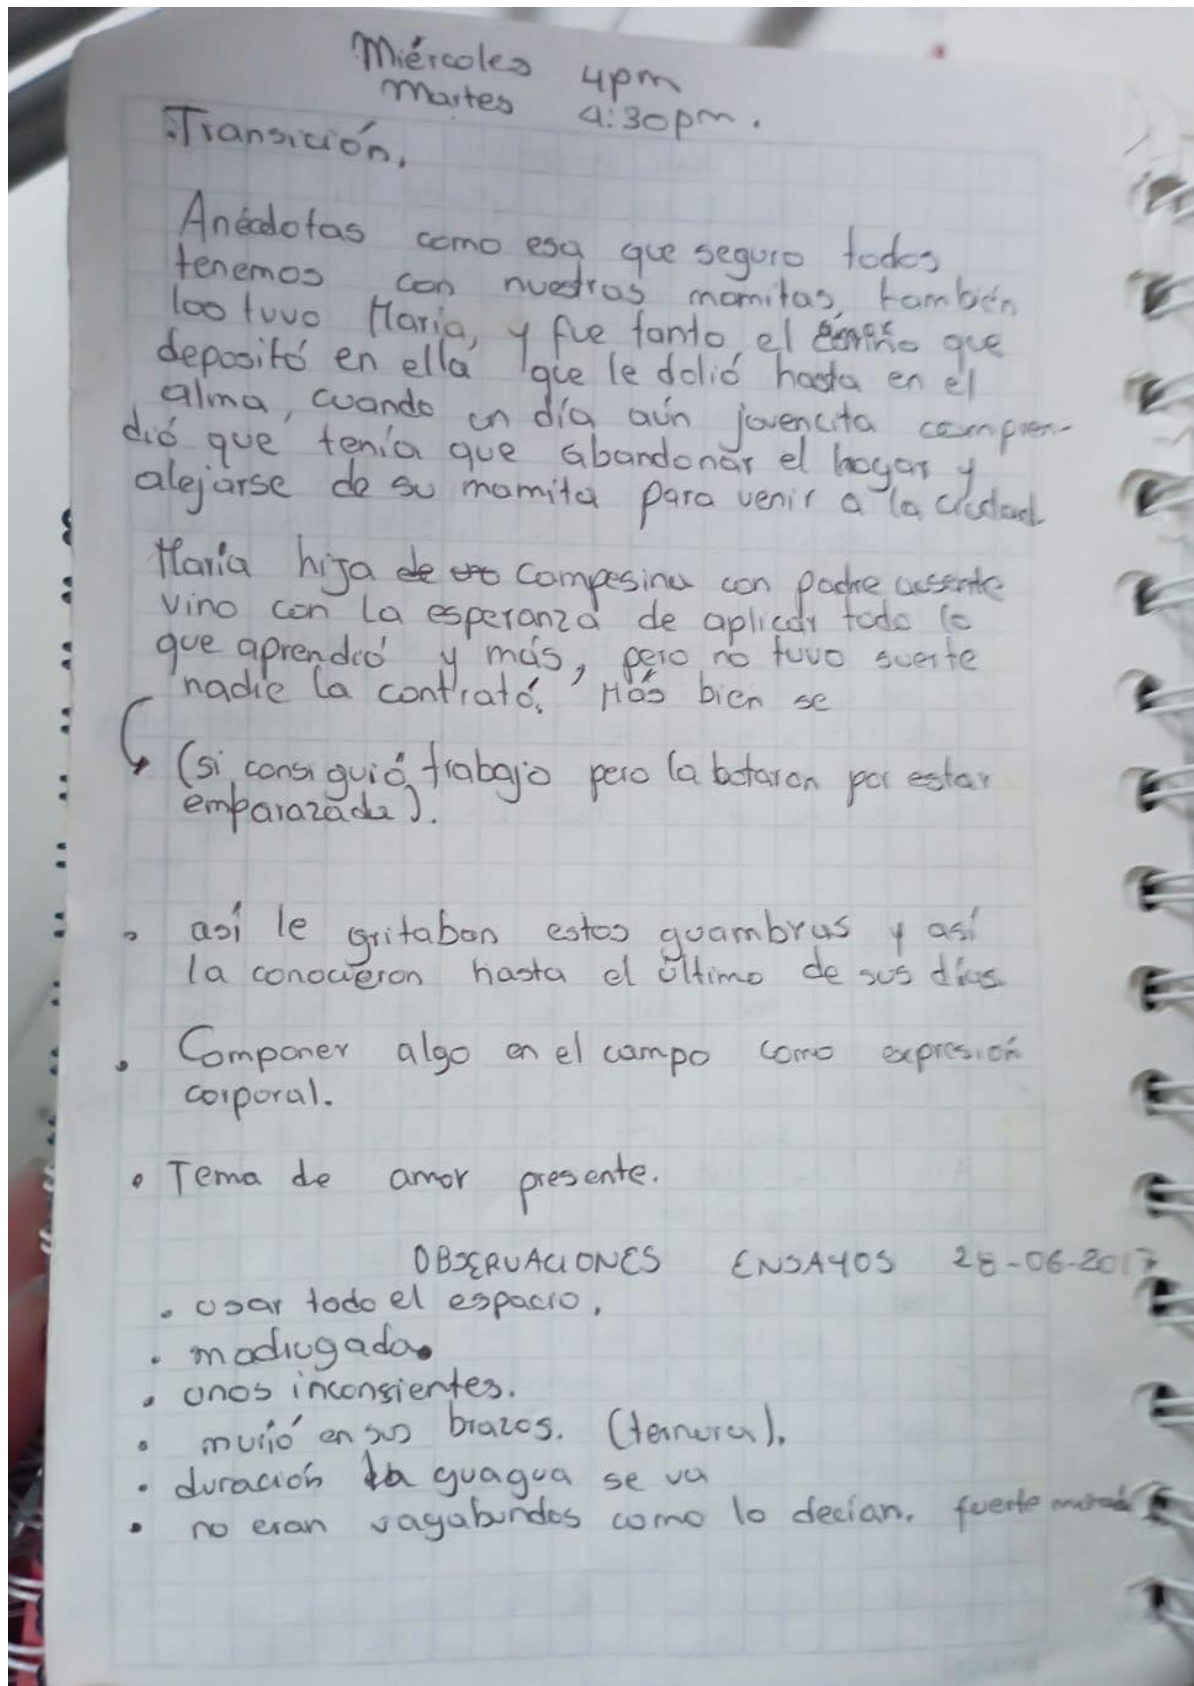 Miércoles 4pm
Martes 4:30pm.
Transición.
Anécdotas como esa que seguro todos
tenemos con nuestras mamitas, también
loo tuvo María, y fue tanto el cariño que
depositó en ella que le dolió hasta en el
alma, cuando un día aún jovencita compren-
dió que tenía que abandonar el hogar y
alejarse de su mamita para venir a la ciudad
María hija de campesina con padre ausente
vino con la esperanza de aplicar todo lo
que aprendió y más, pero no tuvo suerte
nadie la contrató. Más bien se
(si consiguió trabajo pero la botaron por estar
emparazada).
así le gritaban estos guambras y así
la conocieron hasta el último de sus días.
Componer algo en el campo como expresión
corporal.
Tema de amor presente.
OBSERVACIONES ENSAYOS 28-06-2017
usar todo el espacio.
madrugada
unos inconsientes.
murió en sus brazos. (ternura).
duración la guagua se va
no eran vagabundos como lo decían. fuerte